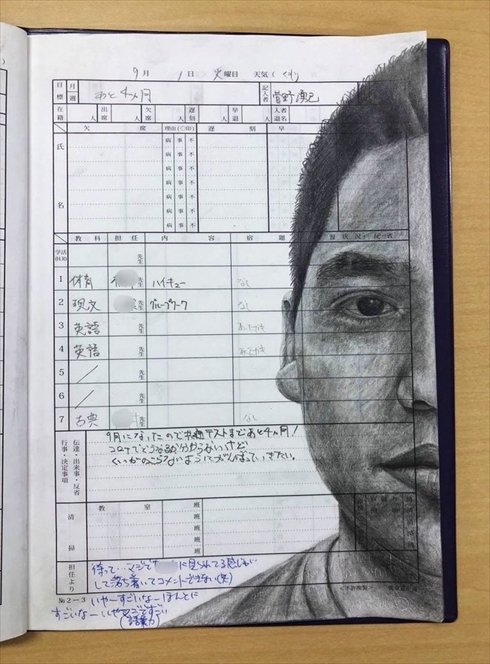 9月 1日 火曜日 天気( くもり
目標 月 週 あと4ヵ月 記入者 菅野湧己
在籍 人 出席 人 欠席 人 遅刻 人 早退 人 入者退名
欠席 理由(○印) 遅刻 早
氏名
病 事 不
病 事 不
病 事 不
病 事 不
病 事 不
病 事 不
教科 担任 内容 宿題
学活(SHR) 先生
1 体育 先生 ハイキュー なし
2 現文 先生 グループワーク なし
3 英語 先生
4 英語 先生
5 / 先生
6 / 先生
7 古典 先生 なし
伝達・出来事・反省
行事・決定事項
9月になったので共通テストまであと4ヵ月!
コロナでどうなるか分からないけど
くいがのこらないようにがんばっていきたい。
清掃 教室 班
班
班
班
担任より
待って…マジで に見られてる感じがい
して落ち着いてコメントできない(笑)
№2-3 いやーすごいなーほんとに
すごいなーいやマジですごい
(語彙力)